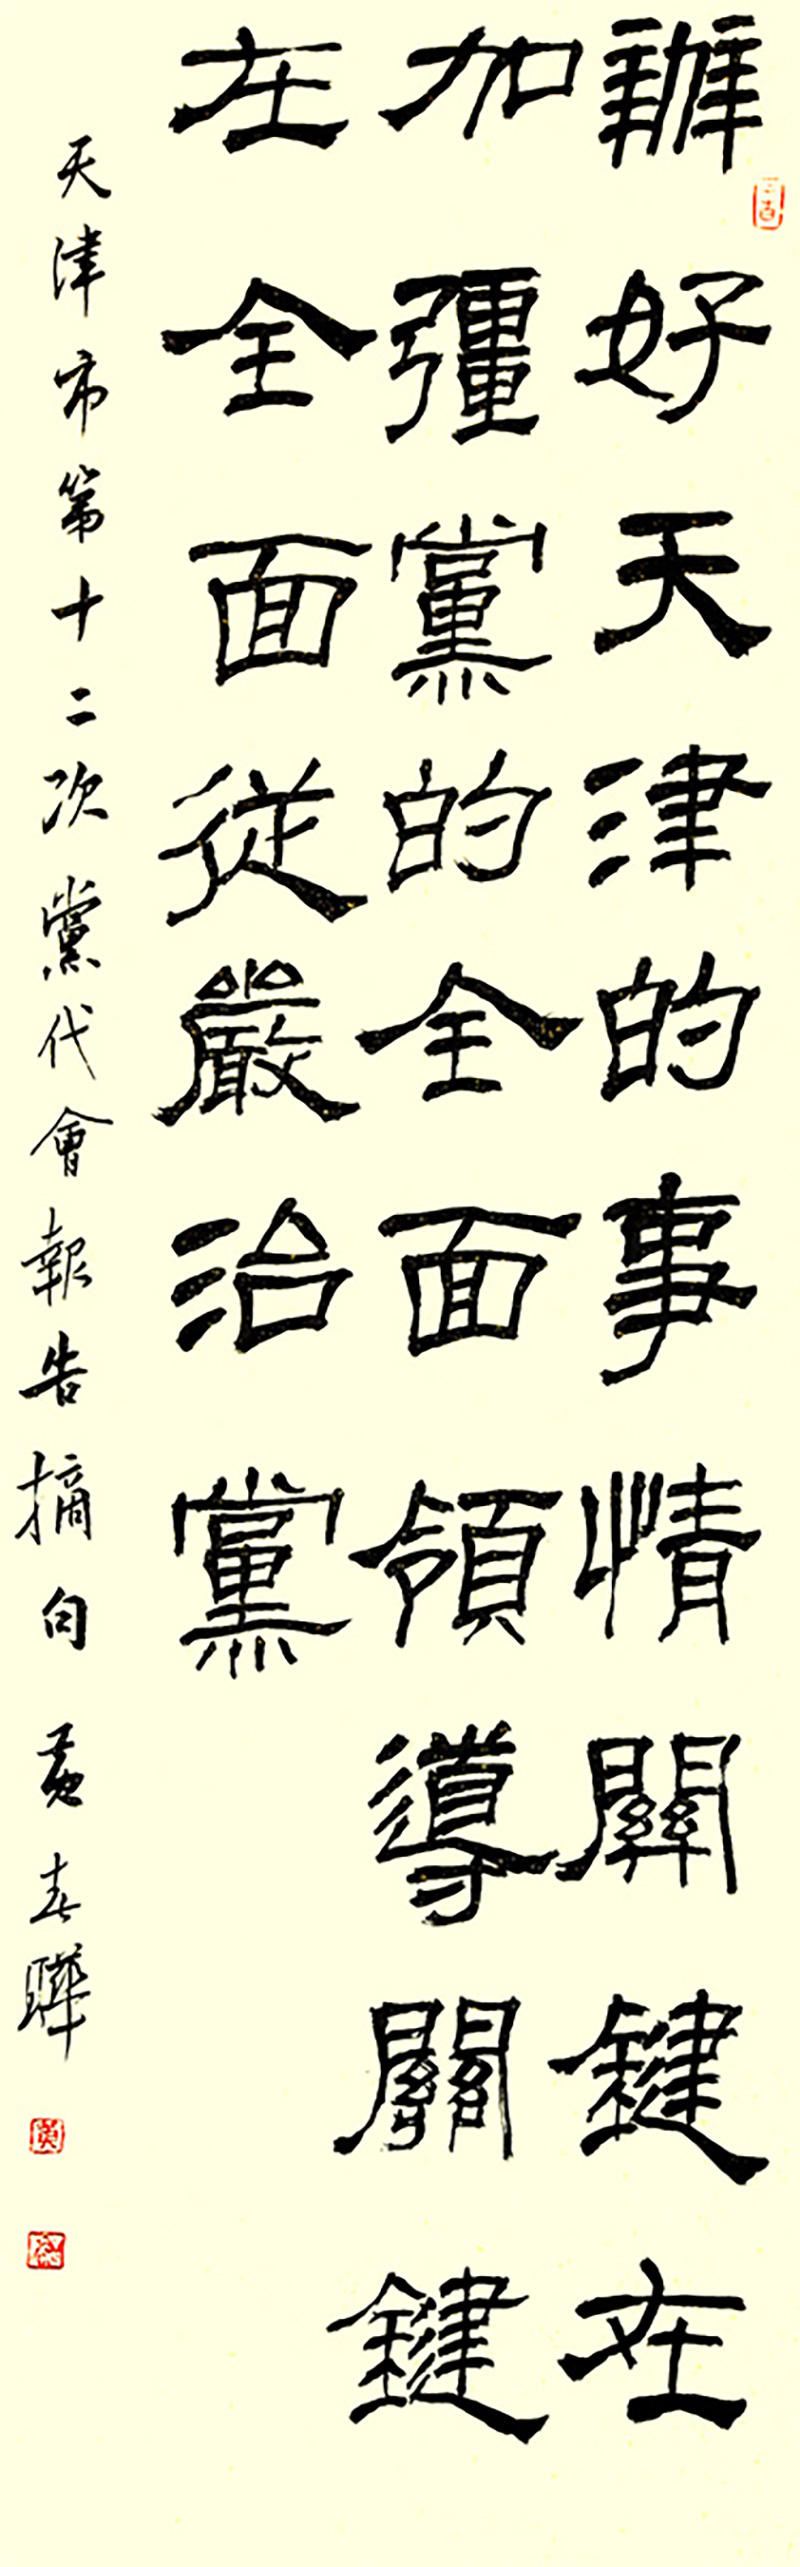 辦好天津的事情關鍵在
加彊黨的全面領導關鍵
在全面從嚴治黨
天津市第十二次黨代會報告摘句 黄春曄